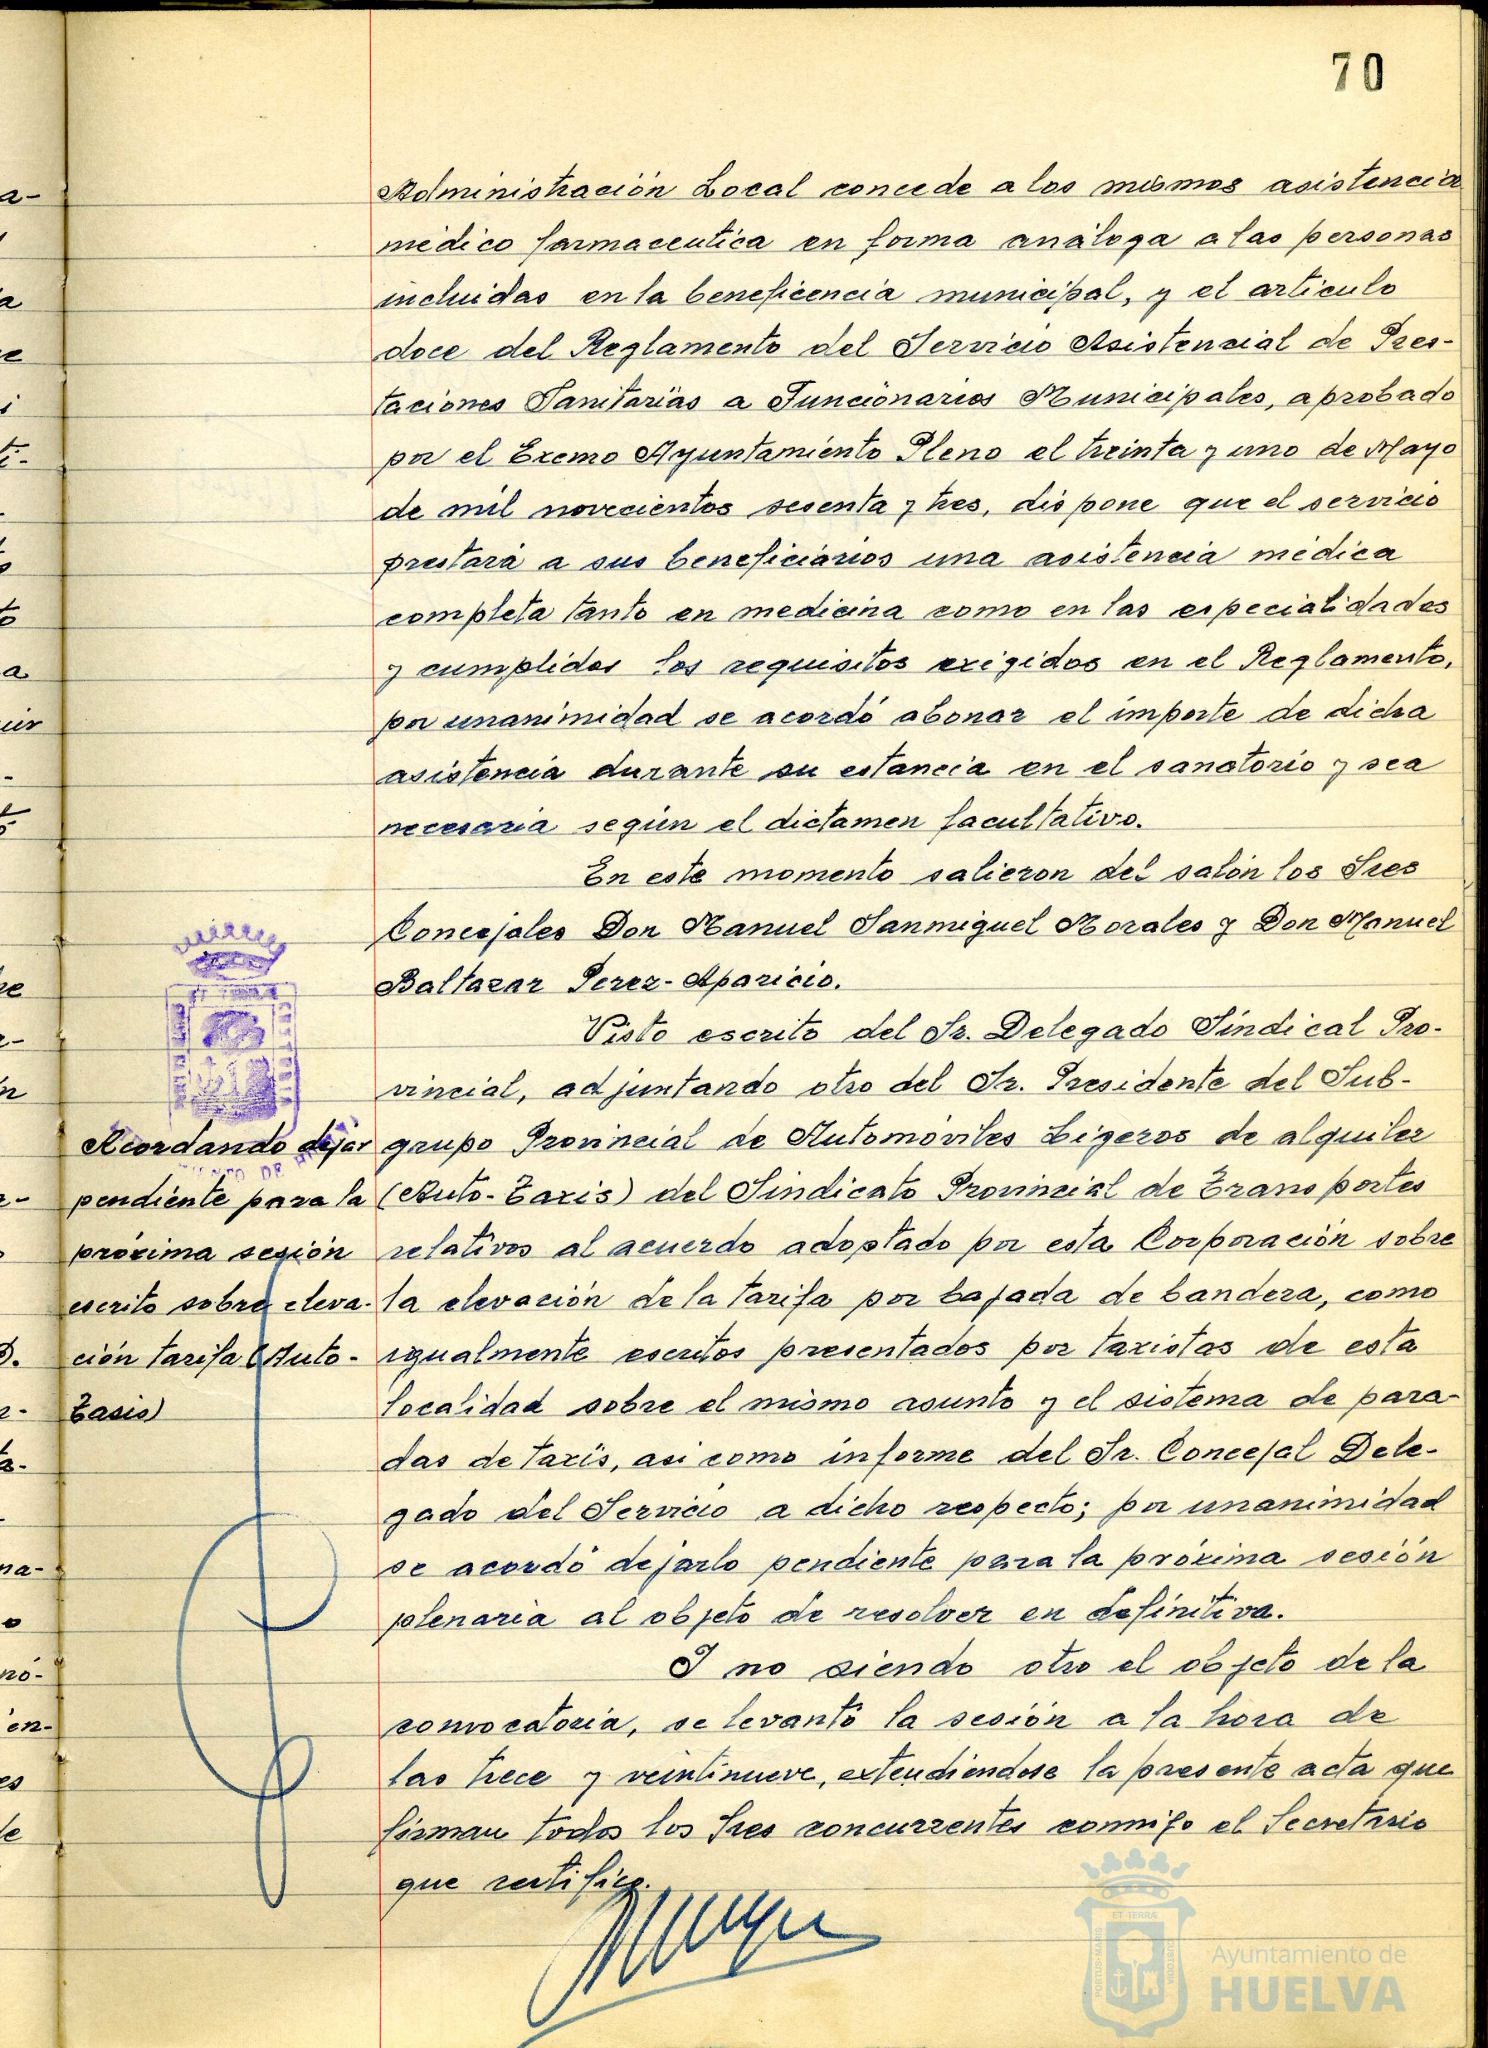 70
Administración Local concede a los mismos asistencia
médico farmaceutica en forma análoga a las personas
incluidas en la beneficencia municipal, y el articulo
doce del Reglamento del Servicio Asistencial de Pres-
taciones Sanitarias a Funcionarios Municipales, aprobado
por el Excmo Ayuntamiento Pleno el treinta y uno de Mayo
de mil novecientos sesenta y tres, dispone que el servicio
prestará a sus beneficiarios una asistencia médica
completa tanto en medicina como en las especialidades
y cumplidos los requisitos exigidos en el Reglamento,
por unanimidad se acordó abonar el importe de dicha
asistencia durante su estancia en el sanatorio y sea
necesaria según el dictamen facultativo.
En este momento salieron del salón los Sres
Concejales Don Manuel Sanmiguel Morales y Don Manuel
Baltazar Perez-Aparicio.
Visto escrito del Sr. Delegado Sindical Pro-
vincial, adjuntando otro del Sr. Presidente del Sub-
grupo Provincial de Automóviles Ligeros de alquiler
(Auto-Taxis) del Sindicato Provincial de Transportes
relativos al acuerdo adoptado por esta Corporación sobre
la elevación de la tarifa por bajada de bandera, como
igualmente escritos presentados por taxistas de esta
localidad sobre el mismo asunto y el sistema de para-
das de taxis, asi como informe del Sr. Concejal Dele-
gado del Servicio a dicho respecto; por unanimidad
se acordó dejarlo pendiente para la próxima sesión
plenaria al objeto de resolver en definitiva.
Y no siendo otro el objeto de la
convocatoria, se levantó la sesión a la hora de
las trece y veintinueve, extendiéndose la presente acta que
firman todos los Sres concurrentes conmigo el Secretario
que certifico.
Acordando dejar
pendiente para la
próxima sesión
escrito sobre eleva-
ción tarifa (Auto-
Tasis)
Ayuntamiento de
HUELVA